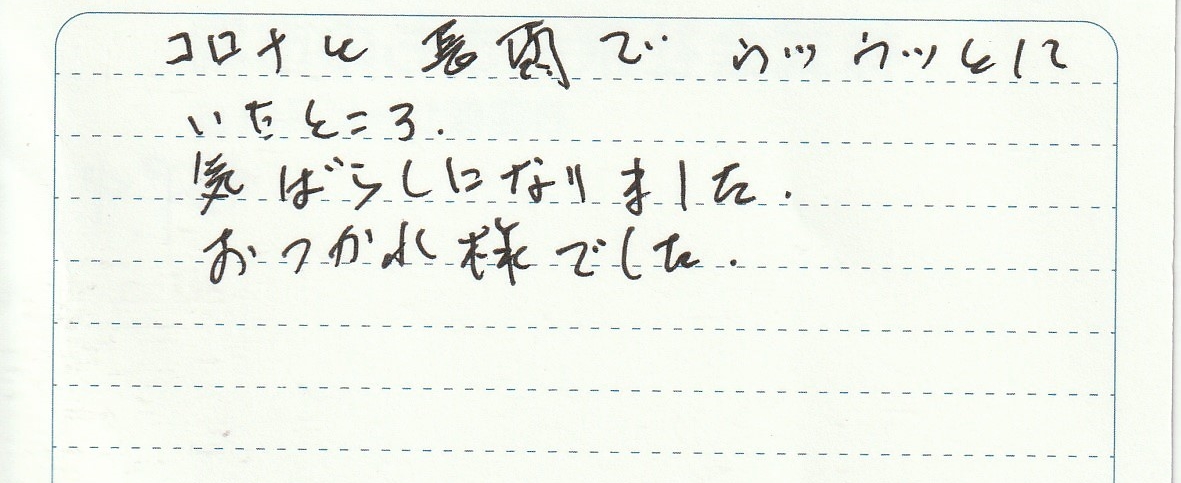 コロナと長雨でウツウツとして
いたところ.
気ばらしになりました.
おつかれ様でした.